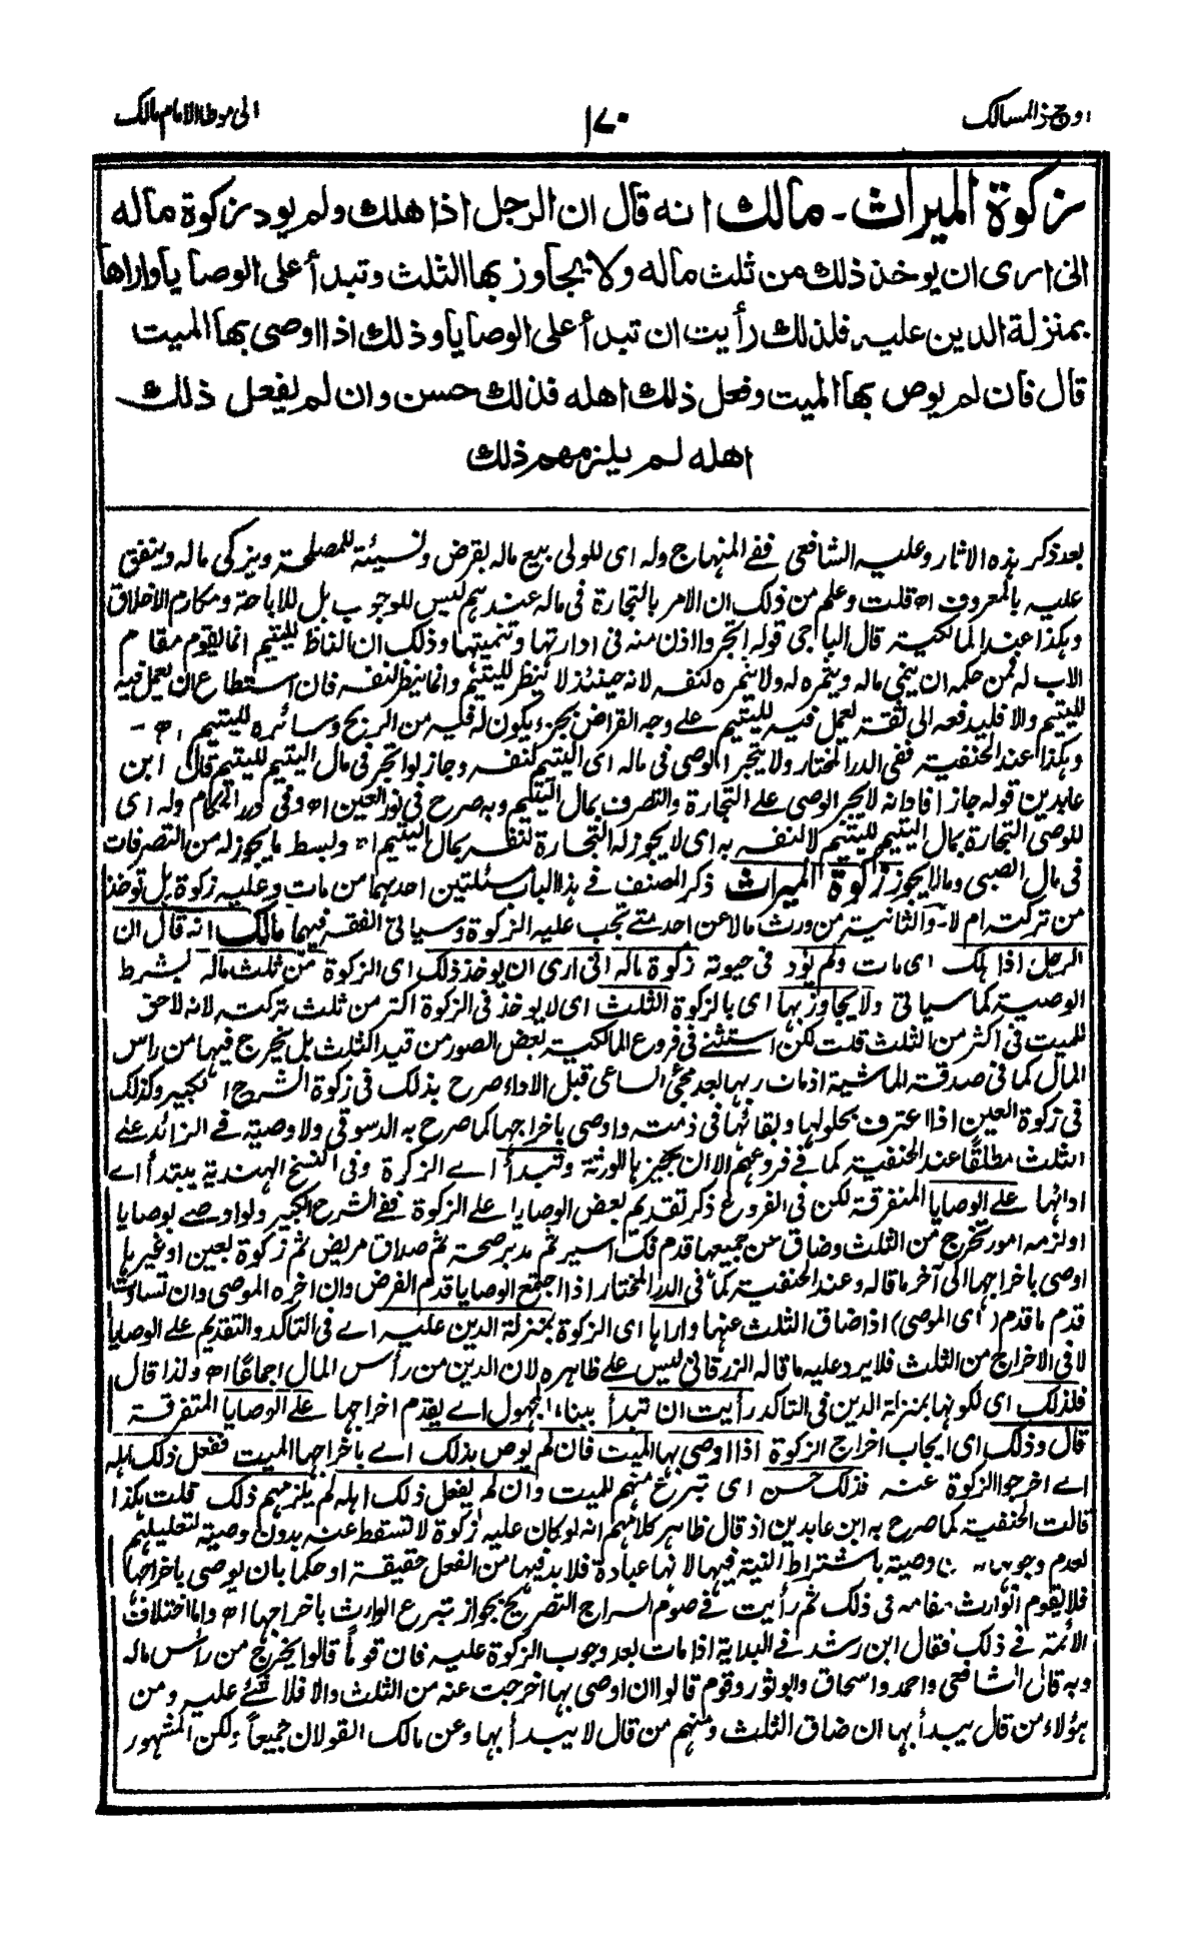 اوجز المسالك
١٧٠
الى موطا الامام مالك
زكوة الميراث - مالك انه قال ان الرجل اذا هلك ولم يود زكوة ماله
انى ارى ان يوخذ ذلك من ثلث ماله ولا يجاوز بها الثلث وتبدأ على الوصايا واراها
بمنزلة الدين عليه فلذلك رأيت ان تبدأ على الوصايا وذلك اذا اوصى بها الميت
قال فان لم يوص بها الميت وفعل ذلك اهله فذلك حسن وان لم يفعل ذلك
اهله لم يلزمهم ذلك
بعد ذكر هذه الاثار وعليه الشافعى ففى المنهاج وله اى للولى بيع ماله بقرض ونسيئة للمصلحة ويزكى ماله وينفق
عليه بالمعروف اه قلت وعلم من ذلك ان الامر بالتجارة فى ماله عندهم ليس للوجوب بل للاباحة ومكارم الاخلاق
وهكذا عند المالكية قال الباجى قوله اتجروا اذن منه فى ادارتها وتنميتها وذلك ان الناظر لليتيم انما يقوم مقام
الاب له فمن حكمه ان ينمى ماله ويثمره له ولا يثمره لنفسه لانه حينئذ لا ينظر لليتيم وانما ينظر لنفسه فان استطاع ان يعمل فيه
لليتيم والا فليدفعه الى ثقة يعمل فيه لليتيم على وجه القراض بجزء يكون له فيه من الربح وسائره لليتيم اه -
وهكذا عند الحنفية ففى الدر المختار ولا يتجر الوصى فى ماله اى اليتيم لنفسه وجاز لو اتجر فى مال اليتيم لليتيم قال ابن
عابدين قوله جاز افاد انه لا يجبر الوصى على التجارة والتصرف بمال اليتيم وبه صرح فى نور العين اه وفى درر الحكام وله اى
للوصى التجارة بمال اليتيم لليتيم لا لنفسه به اى لا يجوز له التجارة لنفسه بمال اليتيم اه وبسط ما يجوز له من التصرفات
فى مال الصبى وما لا يجوز زكوة الميراث ذكر المصنف فى هذا الباب مسئلتين احدهما من مات وعليه زكوة بل توخذ
من تركته ام لا - والثانية من ورث مالا عن احد متى تجب عليه الزكوة وسياتى الفقه فيهما مالك انه قال ان
الرجل اذا هلك اى مات ولم يود فى حيوته زكوة ماله انى ارى ان يوخذ ذلك اى الزكوة من ثلث ماله بشرط
الوصية كما سياتى ولا يجاوز بها اى بالزكوة الثلث اى لا يوخذ فى الزكوة اكثر من ثلث تركته لانه لا حق
للميت فى اكثر من الثلث قلت لكن استثنى فى فروع المالكية بعض الصور من قيد الثلث بل يخرج فيها من راس
المال كما فى صدقة الماشية اذ مات ربها بعد مجئ الساعى قبل الاداء صرح بذلك فى زكوة الشرح الكبير وكذلك
فى زكوة العين اذا اعترف بحلولها وبقائها فى ذمته واوصى باخراجها كما صرح به الدسوقى ولا وصية فى الزائد على
الثلث مطلقًا عند الحنفية كما فى فروعهم الا ان يجيزها للورثة وتبدأ اى الزكوة وفى النسخ الهندية يبتدأ اى
ادائها على الوصايا المتفرقة لكن فى الفروع ذكر تقديم بعض الوصايا على الزكوة ففى الشرح الكبير ولو اوصى بوصايا
او لزمه امور تخرج من الثلث وضاق عن جميعها قدم فك اسير ثم مدبر صحة ثم صداق مريض ثم زكوة لعين او غيرها
اوصى باخراجها الى آخر ما قاله وعند الحنفية كما فى الدر المختار اذا اجتمع الوصايا قدم الفرض وان اخره الموصى وان تساوت
قدم ما قدم (اى الموصى) اذا ضاق الثلث عنها واراها اى الزكوة بمنزلة الدين عليه اى فى التاكد والتقديم على الوصايا
لا فى الاخراج من الثلث فلا يرد عليه ما قاله الزرقانى ليس على ظاهره لان الدين من رأس المال اجماعًا اه ولذا قال
فلذلك اى لكونها بمنزلة الدين فى التاكد رأيت ان تبدأ ببناء المجهول اى يقدم اخراجها على الوصايا المتفرقة
قال وذلك اى ايجاب اخراج الزكوة اذا اوصى بها الميت فان لم يوص بذلك اى باخراجها الميت ففعل ذلك اهله
اى اخرجوا الزكوة عنه فذلك حسن اى تبرع منهم للميت وان لم يفعل ذلك اهله لم يلزمهم ذلك قلت هكذا
قالت الحنفية كما صرح به ابن عابدين اذ قال ظاهر كلامهم انه لو كان عليه زكوة لا تسقط عنه بدون وصية لتعليلهم
لعدم وجوبها وصية باشتراط النية فيها لانها عبادة فلا بد فيها من الفعل حقيقة او حكما بان يوصى باخراجها
فلا يقوم الوارث مقامه فى ذلك ثم رأيت فى صوم السراج التصريح بجواز تبرع الوارث باخراجها اه واما اختلاف
الائمة فى ذلك فقال ابن رشد فى البداية اذا مات بعد وجوب الزكوة عليه فان قومًا قالوا يخرج من رأس ماله
وبه قال الشافعى واحمد واسحاق وابو ثور وقوم قالوا ان اوصى بها اخرجت عنه من الثلث والا فلا شئ عليه ومن
هؤلاء من قال يبدأ بها ان ضاق الثلث ومنهم من قال لا يبدأ بها وعن مالك القولان جميعاً ولكن المشهور